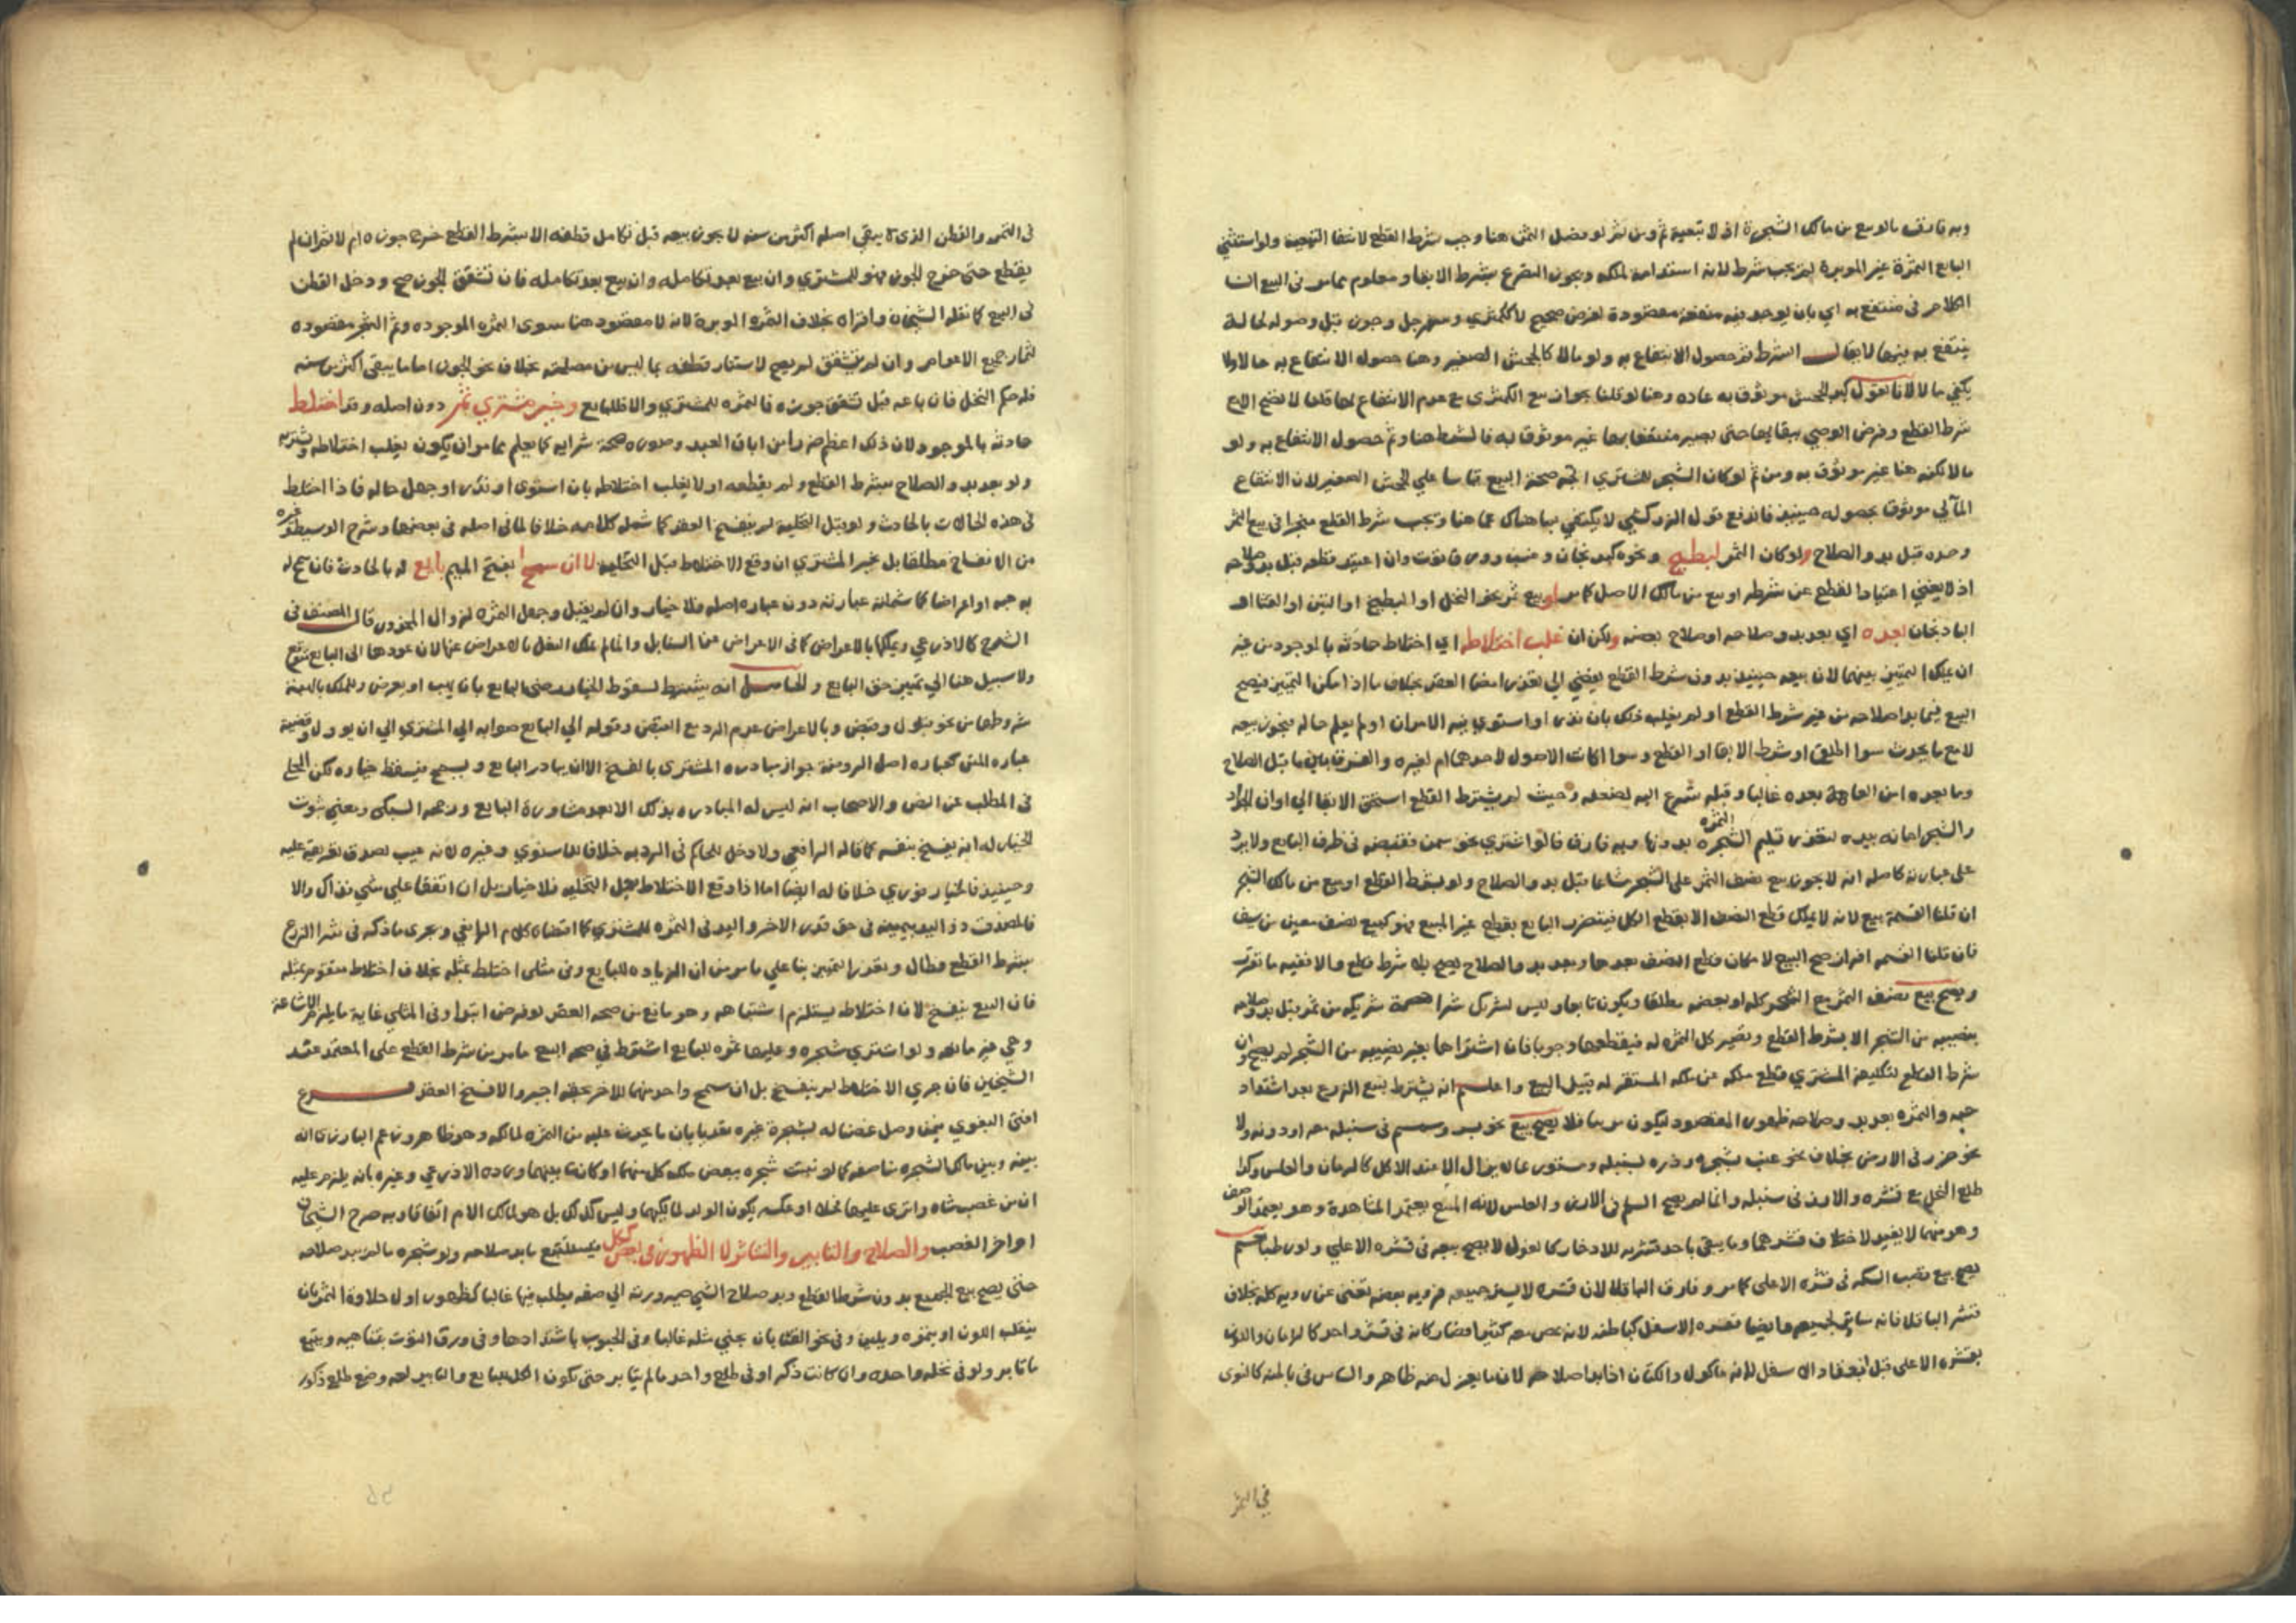 وبه فارق مالو بيع من مالك الشجرة اذ لا تبعية ثم ومن ثم لو فصل الثمن هنا وجب شرط القطع لانتفا التبعية ولو استثنى
البايع الثمرة غير الموبرة لم يجب شرط لانه استدامة لملكه ويجوز التصريح بشرط الابقا ومعلوم مما مر في البيع ان
الكلام في منتفع به اي بان يوجد فيه منفعة مقصودة لغرض صحيح لا ككمثري وسفرجل وجوز قبل وصوله لحالة
ينتفع به فيها لا يقال الشرط ثم حصول الانتفاع به ولو مالا كالجحش الصغير وهنا حصول الانتفاع به حالا ولا
يكفي مالا لانا نقول كبر الجحش موثوق به عاده وهنا لو قلنا بجواز بيع الكمثرى مع عدم الانتفاع لها قلنا لا تصح الا مع
شرط القطع وفرض الوصي ببقايها حتى يصير منتفعا بها غير موثوق به فالشرط هنا وثم حصول الانتفاع به ولو
مالا لكنه هنا غير موثوق به ومن ثم لو كان الشجر للمشتري اتجه صحة البيع قياسا علي الجحش الصغير لان الانتفاع
المآلي موثوقا بحصوله حينيذ فاندفع قول الزركشي لا يكتفي بما هناك عما هنا ويجب شرط القطع منجزا في بيع الثمر
وحده قبل بدو الصلاح ولو كان الثمر لبطيخ ونحوه كبدنجان وعنب وورق توت وان اعتيد قطعه قبل بدو صلاحه
اذ لا يغني اعتياد القطع عن شرطه او بيع من مالك الاصل كما مر او بيع ثمر نحو النخل او البطيخ او التين او القثا او
البادنجان بعده اي بعد بدو صلاحه او صلاح بعضه ولكن ان غلب اختلاطه اي اختلاط حادثه بالموجود من غير
ان يمكن التمييز بينهما لان بيعه حينيذ بدون شرط القطع يفضي الي تعذر امضا العقد بخلاف ما اذا امكن التمييز فيصح
البيع فيما بدا صلاحه من غير شرط القطع او لم يغلب ذلك بان ندر او استوي فيه الامران او لم يعلم حاله فيجوز بيعه
لا مع ما يحدث سوا اطلق او شرط الابقا او القطع وسوا اكانت الاصول لاحدهما ام لغيره والفرق بين ما قبل الصلاح
وما بعده امن العاهة بعده غالبا وقبله تسرع اليه لضعفه وحيث لم يشترط القطع استحق الابقا الي اوان الجداد
والشجر امانه بيده لتعذر تسليم الثمرة بدونها وبه فارق ما لو اشتري نحو سمن فقبضه في ظرف البايع ولا يرد
على عبارته كاصله انه لا يجوز بيع نصف الثمر على الشجر مشاعا قبل بدو الصلاح ولو بشرط القطع او بيع من مالك الشجر
ان قلنا القسمة بيع لانه لا يمكن قطع النصف الا بقطع الكل فيتضرر البايع بقطع غير المبيع فهو كبيع نصف معين من سيف
فان قلنا القسمه افراز صح البيع لامكان قطع النصف بعدها وبعد بدو الصلاح يصح بلا شرط قطع والا ففيه ما تقرر
ويصح بيع نصف الثمر مع الشجر كله او بعضه مطلقا ويكون تابعا وليس لشريك شرا حصة شريكه من ثمر قبل بدو صلاحه
بنصيبه من الشجر الا بشرط القطع وتصير كل الثمره له فيقطعها وجوبا فان اشتراها بغير نصيبه من الشجر لم يصح وان
شرط القطع لتكليفه المشتري قطع ملكه عن ملكه المستقر له قبل البيع واعلم انه يشترط لبيع الزرع بعد اشتداد
حبه والثمره بعد بدو صلاحه ظهور المقصود ليكون مرييا فلا يصح بيع نحو بر وسمسم في سنبله معه او دونه ولا
نحو جزر في الارض بخلاف نحو عنب بشجره وذره بسنبله ومستور بما لا يزال الا عند الاكل كالرمان والعلس وكذا
طلع النخل مع قشره والارز في سنبله وانما لم يصح السلم في الارز والعلس لانه المبيع يعتمد المشاهدة وهو يعتمد الوصف
وهو منهما لا يفيد لاختلاف قشرهما وما يبقى باحد قشريه للادخار كالفول لا يصح بيعه في قشره الاعلي ولو رطبا نعم
يصح بيع قصب السكر في قشره الاعلى كما مر وفارق الباقلا لان قشره لا يستر جميعه فروية بعضه تغني عن رويه كله بخلاف
قشر الباقلا فانه ساتر لجميعه وايضا قشره الاسفل كباطنه لانه يمص معه كثيرا فصار كانه في قشر واحد كالرمان واللوز
بقشره الاعلى قبل انعقاد الاسفل لانه ماكول والكتان اذا بدا صلاحه لان ما يغزل منه ظاهر والساس في باطنه كالنوى
في الثمر
في الثمر والقطن الذي لا يبقي اصله اكثر من سنه لا يجوز بيعه قبل تكامل قطنه الا بشرط القطع خرج جوزه ام لا ثم ان لم
يقطع حتى خرج الجوز فهو للمشتري وان بيع بعد تكامله وان بيع بعد تكامله فان تشقق الجوز صح ودخل القطن
في البيع كما نقله الشيخان واقراه بخلاف الثمره الموبرة لانه لا مقصود هنا سوى الثمره الموجوده وثم الشجر مقصوده
لثمار جميع الاعوام وان لم يتشقق لم يصح لاستتار قطنه بما ليس من مصلحته بخلاف نحو الجوز اما ما يبقى اكثر من سنه
فله حكم النخل فان باعه قبل تشقق جوزه فالثمره للمشتري والا فللبايع وخير مشتري ثمر دون اصله وقد اختلط
حادثه بالموجود لان ذلك اعظم ضررا من اباق العبد وصورة صحة شرايه كما يعلم مما مر ان يكون يغلب اختلاطه ويشتريه
ولو بعد بدو الصلاح بشرط القطع ولم يقطعه او لا يغلب اختلاطه بان استوى او ندر او جهل حاله فاذا اختلط
في هذه الحالات بالحادث ولو قبل التخلية لم ينفسخ العقد كما شمله كلامه خلافا لما في اصله في بعضها وشرح الوسيط وغيره
من الانفساخ مطلقا بل يخير المشتري ان وقع الاختلاط قبل التخلية لا ان سمح بفتح الميم بايع له بالحادث فان سمح له
به هبه او اعراضا كما شملته عبارته دون عباره اصله فلا خيار وان لم يقبل وجعل الثمره لزوال المحذور قال المصنف في
الشرح كالاذرعي ويملكها بالاعراض كما في الاعراض عن السنابل وانما لم يملك النعل بالاعراض عنها لان عودها الى البايع متوقع
ولا سبيل هنا الي تمييز حق البايع والحاصل انه يشترط لسقوط الخيار رضى البايع بان يهب او يعرض ويملك بالهبة
شروطها من نحو قبول وقبض وبالاعراض عدم الرد مع القبض وقوله الي البايع صوابه الي المشتري الي ان يوول وقضية
عباره المتن كعباره اصل الروضة جواز مبادره المشتري بالفسخ الا ان يبادر البايع ويسمح فيسقط خياره لكن المحلي
في المطلب عن النص والاصحاب انه ليس له المبادره بذلك الا بعد مشاورة البايع ورجحه السبكي ومعنى ثبوت
الخيار له انه يفسخ بنفسه كما قاله الرافعي ولا دخل للحاكم في الرد به خلافا للاسنوي وغيره لانه عيب لصدق تعريفه عليه
وحينيذ فالخيار فوري خلافا له ايضا اما اذا وقع الاختلاط بعد التخليه فلا خيار بل ان اتفقا علي شي فذاك والا
فالمصدق ذو اليد بيمينه في حق قدر الاخر واليد في الثمره للمشتري كما اقتضاه كلام الرافعي وجرى ما ذكر في شرا الزرع
بشرط القطع فطال وتعذر التمييز بنا علي ما مر من ان الزياده للبايع وفي مثلي اختلط بمثله بخلاف اختلاط متقوم بمثله
فان البيع ينفسخ لان اختلاطه يستلزم اشتباهه وهو مانع من صحه العقد لو فرض ابتدا وفي المثلي غاية ما يلزم الاشاعة
وهي غير مانعه ولو اشتري شجره وعليها ثمره للبايع اشترط في صحه البيع ما مر من شرط القطع على المعتمد عند
الشيخين فان جري الاختلاط لم ينفسخ بل ان سمح واحد منهما للاخر بحقه اجبر والا فسخ العقد فرع
افتى البغوي فيمن وصل غصنا له بشجرة غيره تعديا بان ما يحدث عليه من الثمره لمالكه وهو ظاهر وزعم البارزي انه
بينه وبين مالك الشجره مناصفه كما لو نبتت شجره ببعض ملك كل منهما او كانت بينهما ورده الاذرعي وغيره بانه يلزم عليه
ان من غصب شاه وانزى عليها فحلا او عكسه يكون الولد لمالكيهما وليس كذلك بل هو لمالك الام اتفاقا وبه صرح الشيخان
اواخر الغصب والصلاح والتابير والتناثر لا الظهور في بعض ككل فيستتبع ما بدا صلاحه ولو شجره ما لم يبد صلاحه
حتى يصح بيع الجميع بدون شرط القطع وبدو صلاح الشي صيرورته الي صفه يطلب فيها غالبا كظهور اول حلاوة الثمر بان
ينقلب اللون او يتموه ويلين وفي نحو القثا بان يجني مثله غالبا وفي الحبوب باشتدادها وفي ورق التوت بتناهيه ويتبع
ما تابر ولو في نخله واحده وان كانت ذكرا او في طلع واحد مالم يتابر حتى تكون الكل للبايع والتابير لغه وضع طلع ذكور